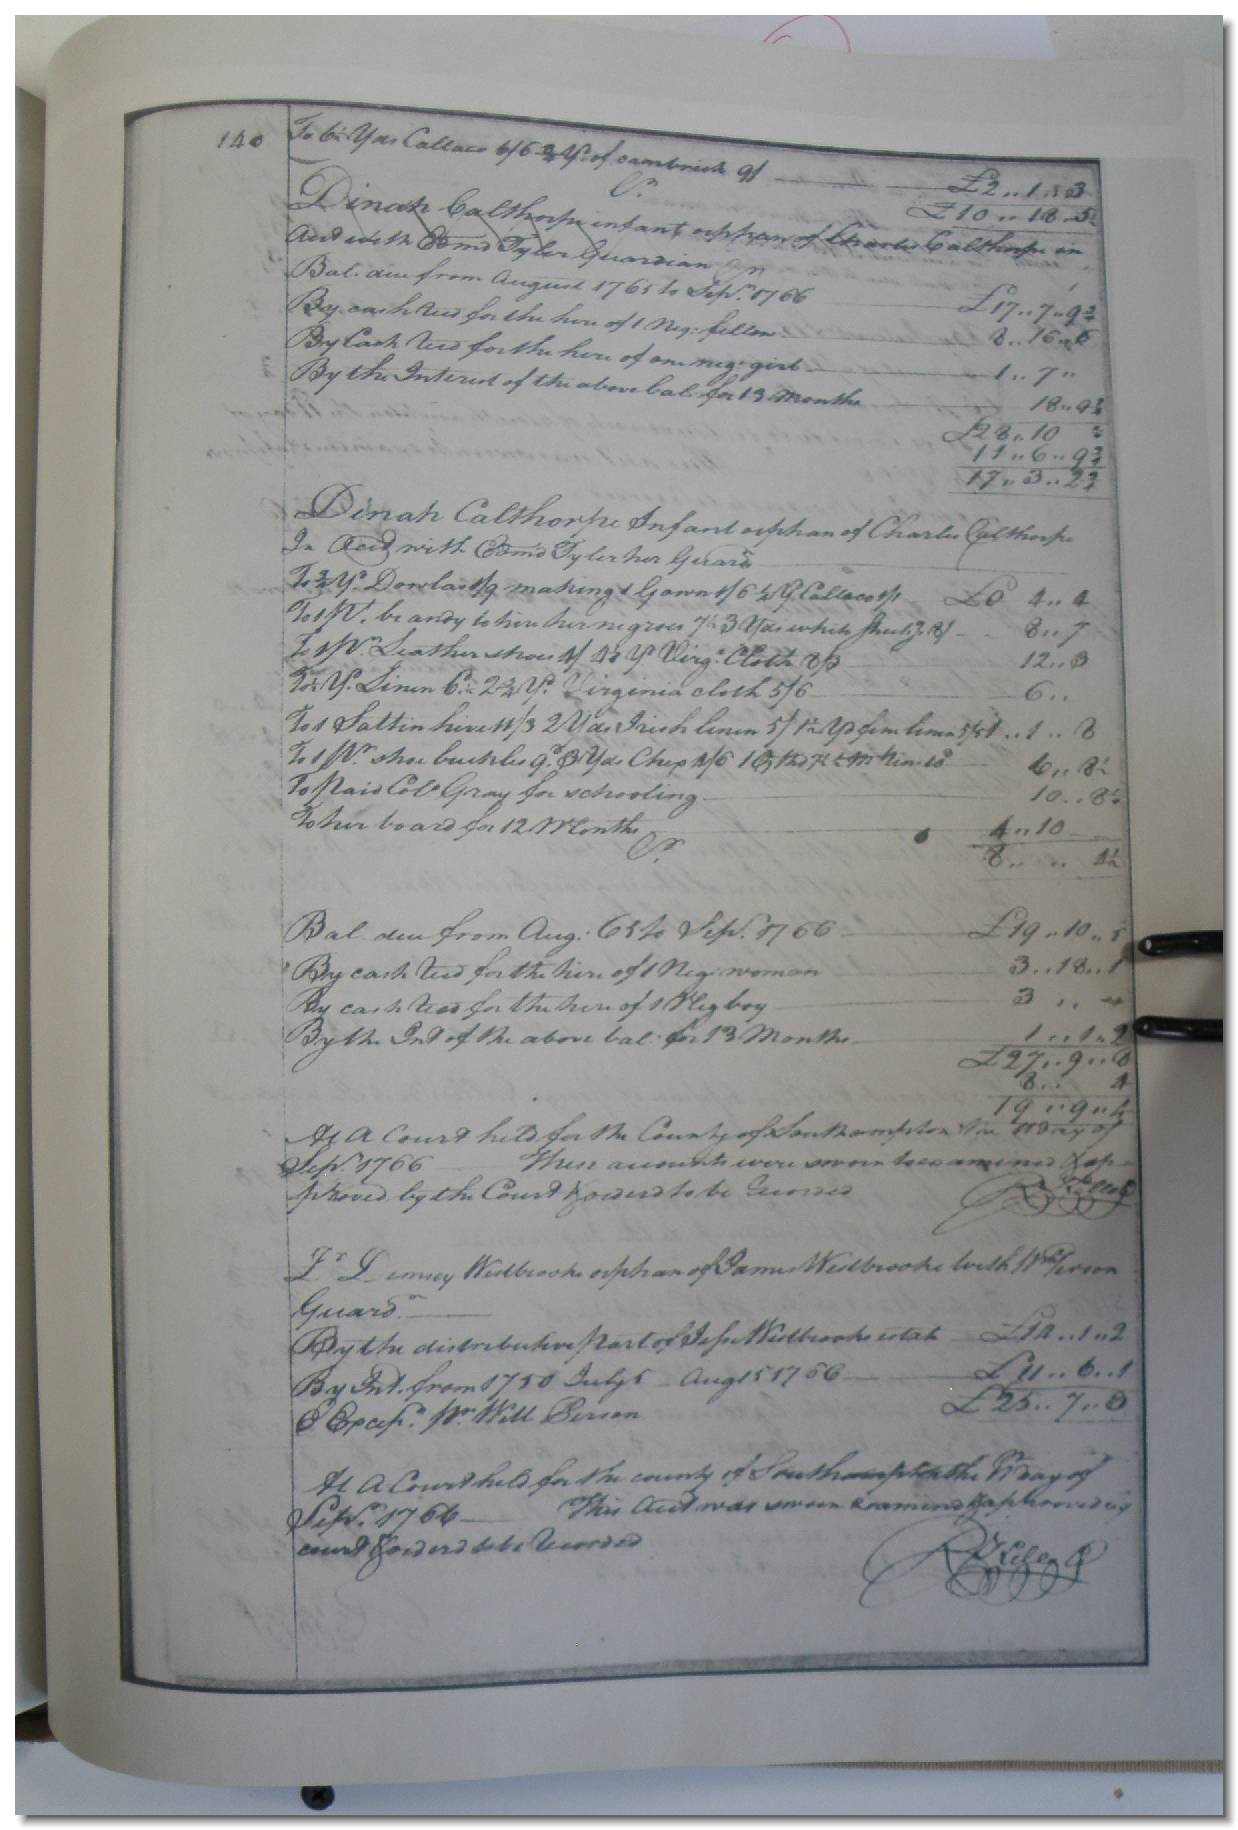 140
To 6½ Yds Callaco 6/6 Yd of cambrick 9/ £2 .. 1 .. 3
Cr. £10 .. 18 .. 5
Dinah Calthorpe infant orphan of Charles Calthorpe in
Acct with Edmd Tyler Guardian Cr
Bal. due from August 1765 to Sepr. 1766 £17 .. 7 .. 9¾
By cash Recd for the hire of 1 Neg: fellow 8 .. 16 .. 6
By Cash Recd for the hire of one neg: girl 1 .. 7 ..
By the Interest of the above bal. for 13 Months 18 .. 9¾
£28 .. 10
11 .. 6 .. 9¾
17 .. 3 .. 2¾
Dinah Calthorpe Infant orphan of Charles Calthorpe
In Acct with Edmd Tyler her Guardn
Yd. Dowlas making 1 Gown 1/6 Yd Callaco £0 4 .. 4
brandy to hire her negroes 3 Yds white 8 .. 7
To 1 Pr. Leather shoes 4/ Yds Virga. Cloth 12 .. 8
Yd. Linen Yds. Virginia cloth 5/6 6 ..
To 1 Sattin 2 Yds Irish linen 5/ Yd fine linen 1 .. 1 .. 8
To 1 Pr. shoe buckles 9d. 3 Yds Chex 4/6 6 .. 8½
To Paid Colo. Gray for schooling 10 .. 8½
To her board for 12 Months 4 .. 10
Cr. 8 .. .. 4½
Bal. due from Aug: 65 to Sepr. 1766 £19 .. 10 .. 5
By cash Recd for the hire of 1 Neg: woman 3 .. 18 .. 1
By cash Recd for the hire of 1 Neg boy 3 .. -
By the Int of the above bal. for 13 Months 1 .. 1 .. 2
£27 .. 9 .. 8
8 .. 4
19 .. 9 .. 4
At A Court held for the County of Southampton the 11 day of
Sepr. 1766 These accounts were sworn to examined & ap-
proved by the Court & orderd to be Recorded
R Kello C
Dr Demsey Westbrooke orphan of James Westbrooke with Wm Person
Guardn.
By the distributive Part of Jesse Westbrooks estate £14 .. 1 .. 2
By Int. from 1750 July 5 Aug 15 1766 £11 .. 6 .. 1
£25 .. 7 .. 3
E Excepd. Pr. Will Person
At A Court held for the county of Southampton the 11th day of
Sepr. 1766 This Acct was sworn examined & approved by
court & orderd to be Recorded
R Kello C